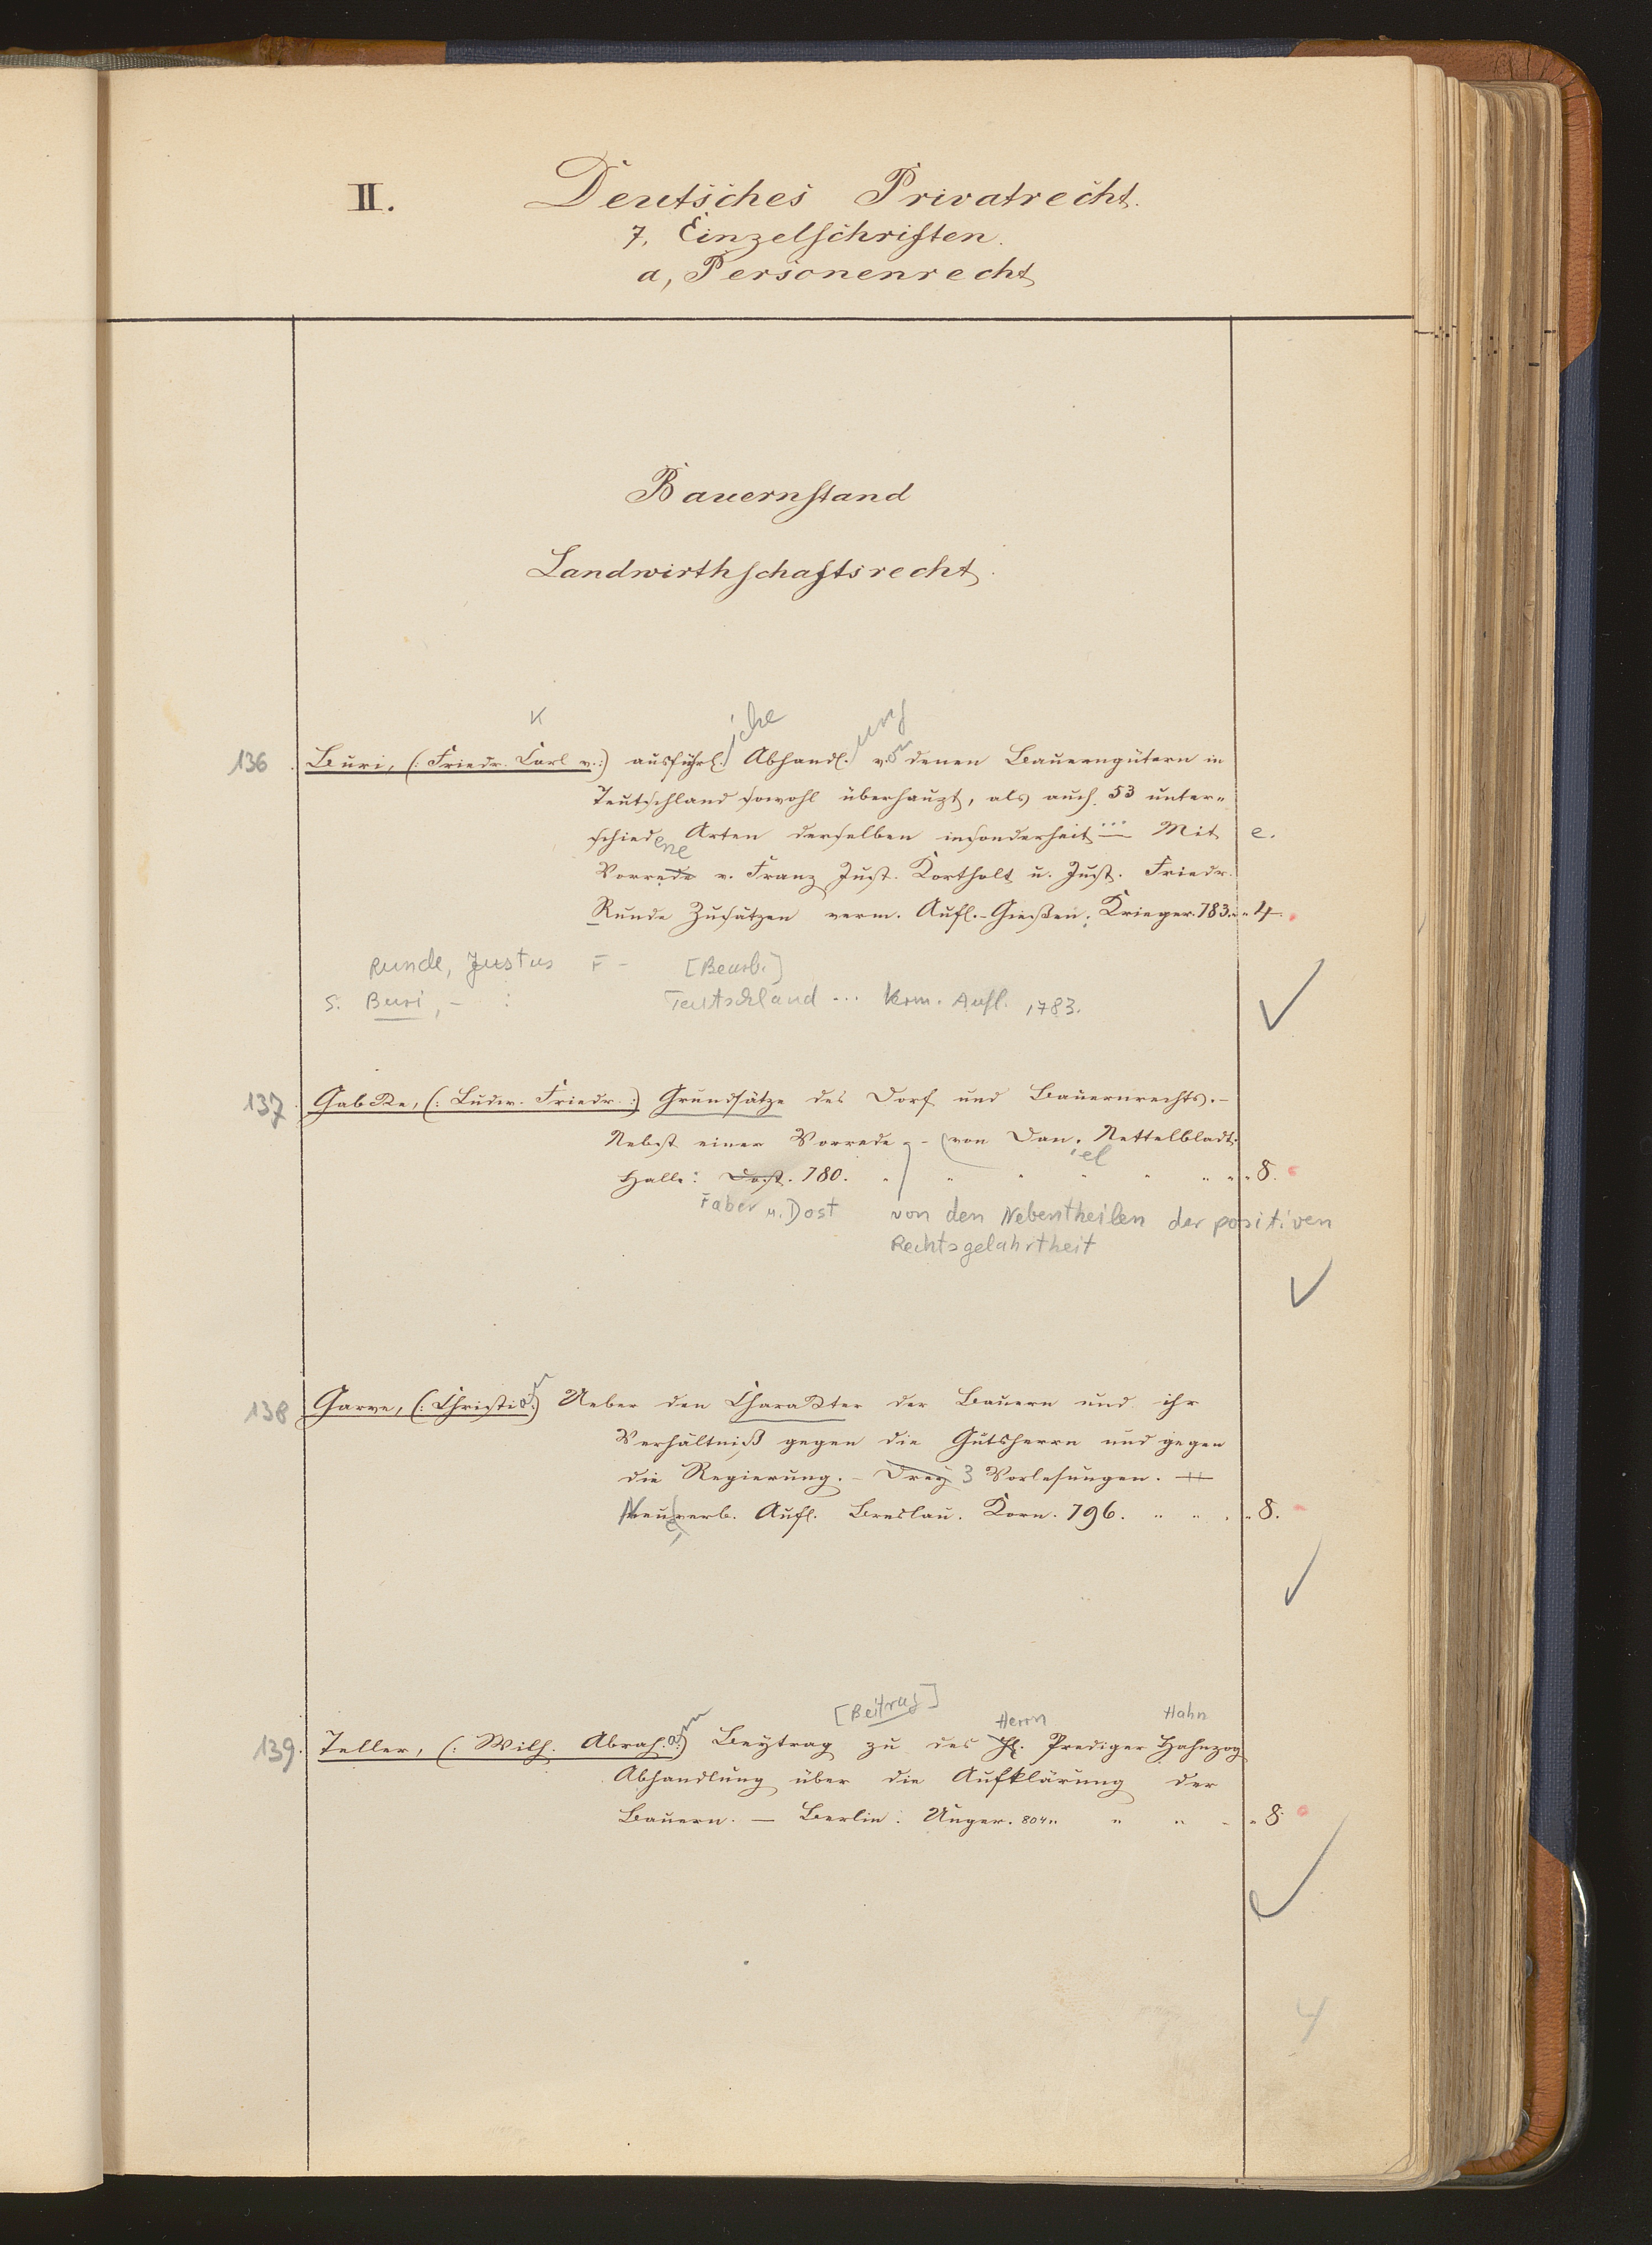 II. Deutsches Privatrecht.
7, Einzelschriften.
a, Personenrecht
Bauernstand
Landwirthschaftsrecht.
K iche ung
136 Buri, (: Friedr. Carl v. :) ausführl. Abhandl. v. denen Bauerngütern in
Teutschland sowohl überhaupt, als auch 53 unter-
schiedene Arten derselben insonderheit ... Mit e.
Vorrede v. Franz Just. Kortholt u. Just. Friedr.
Runde Zusätzen verm. Aufl. - Gießen: Krieger. 783. 4.
Runde, Justus F - [Bearb.]
S. Buri, - : Teutschland ... Verm. Aufl. 1783.
137 Gabcke, (: Ludw. Friedr. :) Grundsätze des Dorf und Bauernrechts. -
Nebst einer Vorrede - von Dan. Nettelbladt.
iel
Halle: Dost. 780. " " " " " " " 8.
Faber u. Dost von den Nebentheilen der positiven
Rechtsgelahrtheit
138 Garve, (: Christian :) Ueber den Charakter der Bauern und ihr
Verhältniß gegen die Gutsherrn und gegen
die Regierung. - Drey 3 Vorlesungen.
Neue verb. Aufl. Breslau. Korn. 796. " " " " 8.
[Beitrag] Herrn Hahn
139. Teller, (: Wilh. Abrah. :) Beytrag zu des H. Prediger Hahnzog
Abhandlung über die Aufklärung der
Bauern. — Berlin: Unger. 804. " " " " 8.
4